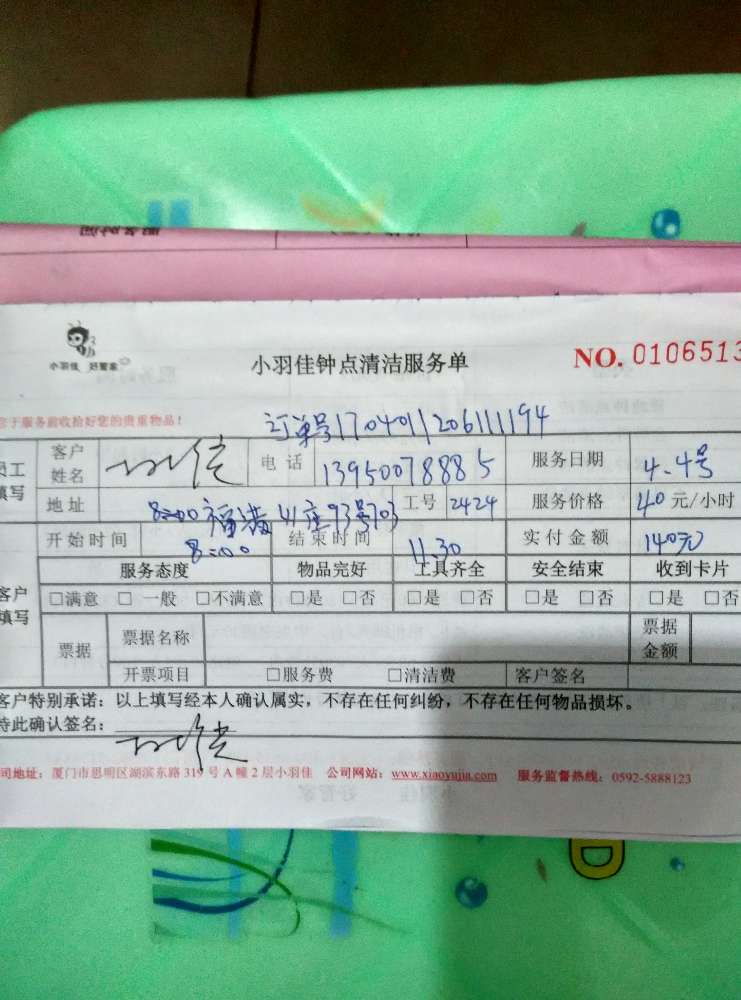 小羽佳 好管家
小羽佳钟点清洁服务单
NO. 0106513
于服务前收拾好您的贵重物品！
订单号1704011206111194
员工填写 客户姓名 佳 电话 13950078885 服务日期 4.4号
地址 8:00 福 93号703 工号 2424 服务价格 40元/小时
开始时间 8:00 结束时间 11.30 实付金额 140元
客户填写 服务态度 物品完好 工具齐全 安全结束 收到卡片
□满意 □一般 □不满意 □是 □否 □是 □否 □是 □否 □是 □否
票据 票据名称 票据金额
开票项目 □服务费 □清洁费 客户签名
客户特别承诺：以上填写经本人确认属实，不存在任何纠纷，不存在任何物品损坏。
特此确认签名：
司地址：厦门市思明区湖滨东路 319 号 A 幢 2 层小羽佳 公司网站：www.xiaoyujia.com 服务监督热线：0592-5888123
D